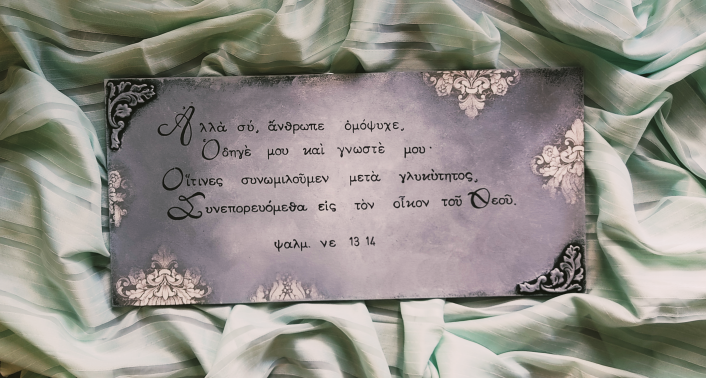 Ἀλλὰ σύ, ἄνθρωπε ὁμόψυχε,
Ὁδηγὲ μου καὶ γνωστὲ μου·
Οἵτινες συνωμιλοῦμεν μετὰ γλυκύτητος,
Συνεπορευόμεθα εἰς τὸν οἶκον τοῦ Θεοῦ.
ψαλμ. νε 13 14